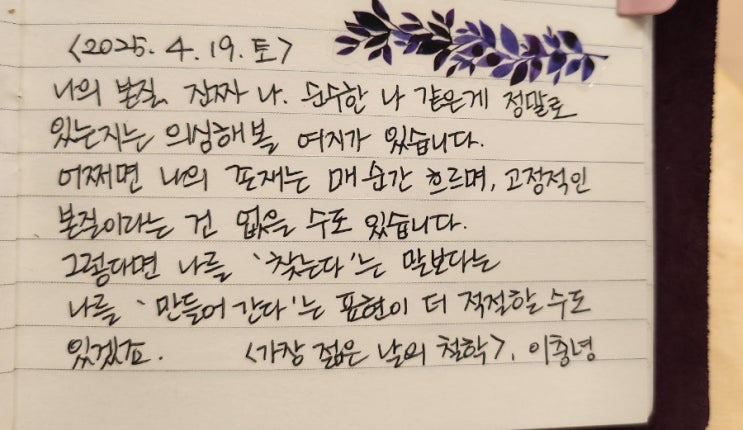 <2025. 4. 19. 토>
나의 본질, 진짜 나. 순수한 나 같은게 정말로
있는지는 의심해볼 여지가 있습니다.
어쩌면 나의 존재는 매 순간 흐르며, 고정적인
본질이라는 건 없을 수도 있습니다.
그렇다면 나를 '찾는다'는 말보다는
나를 '만들어 간다'는 표현이 더 적절할 수도
있겠죠. <가장 젊은 날의 철학>, 이충녕